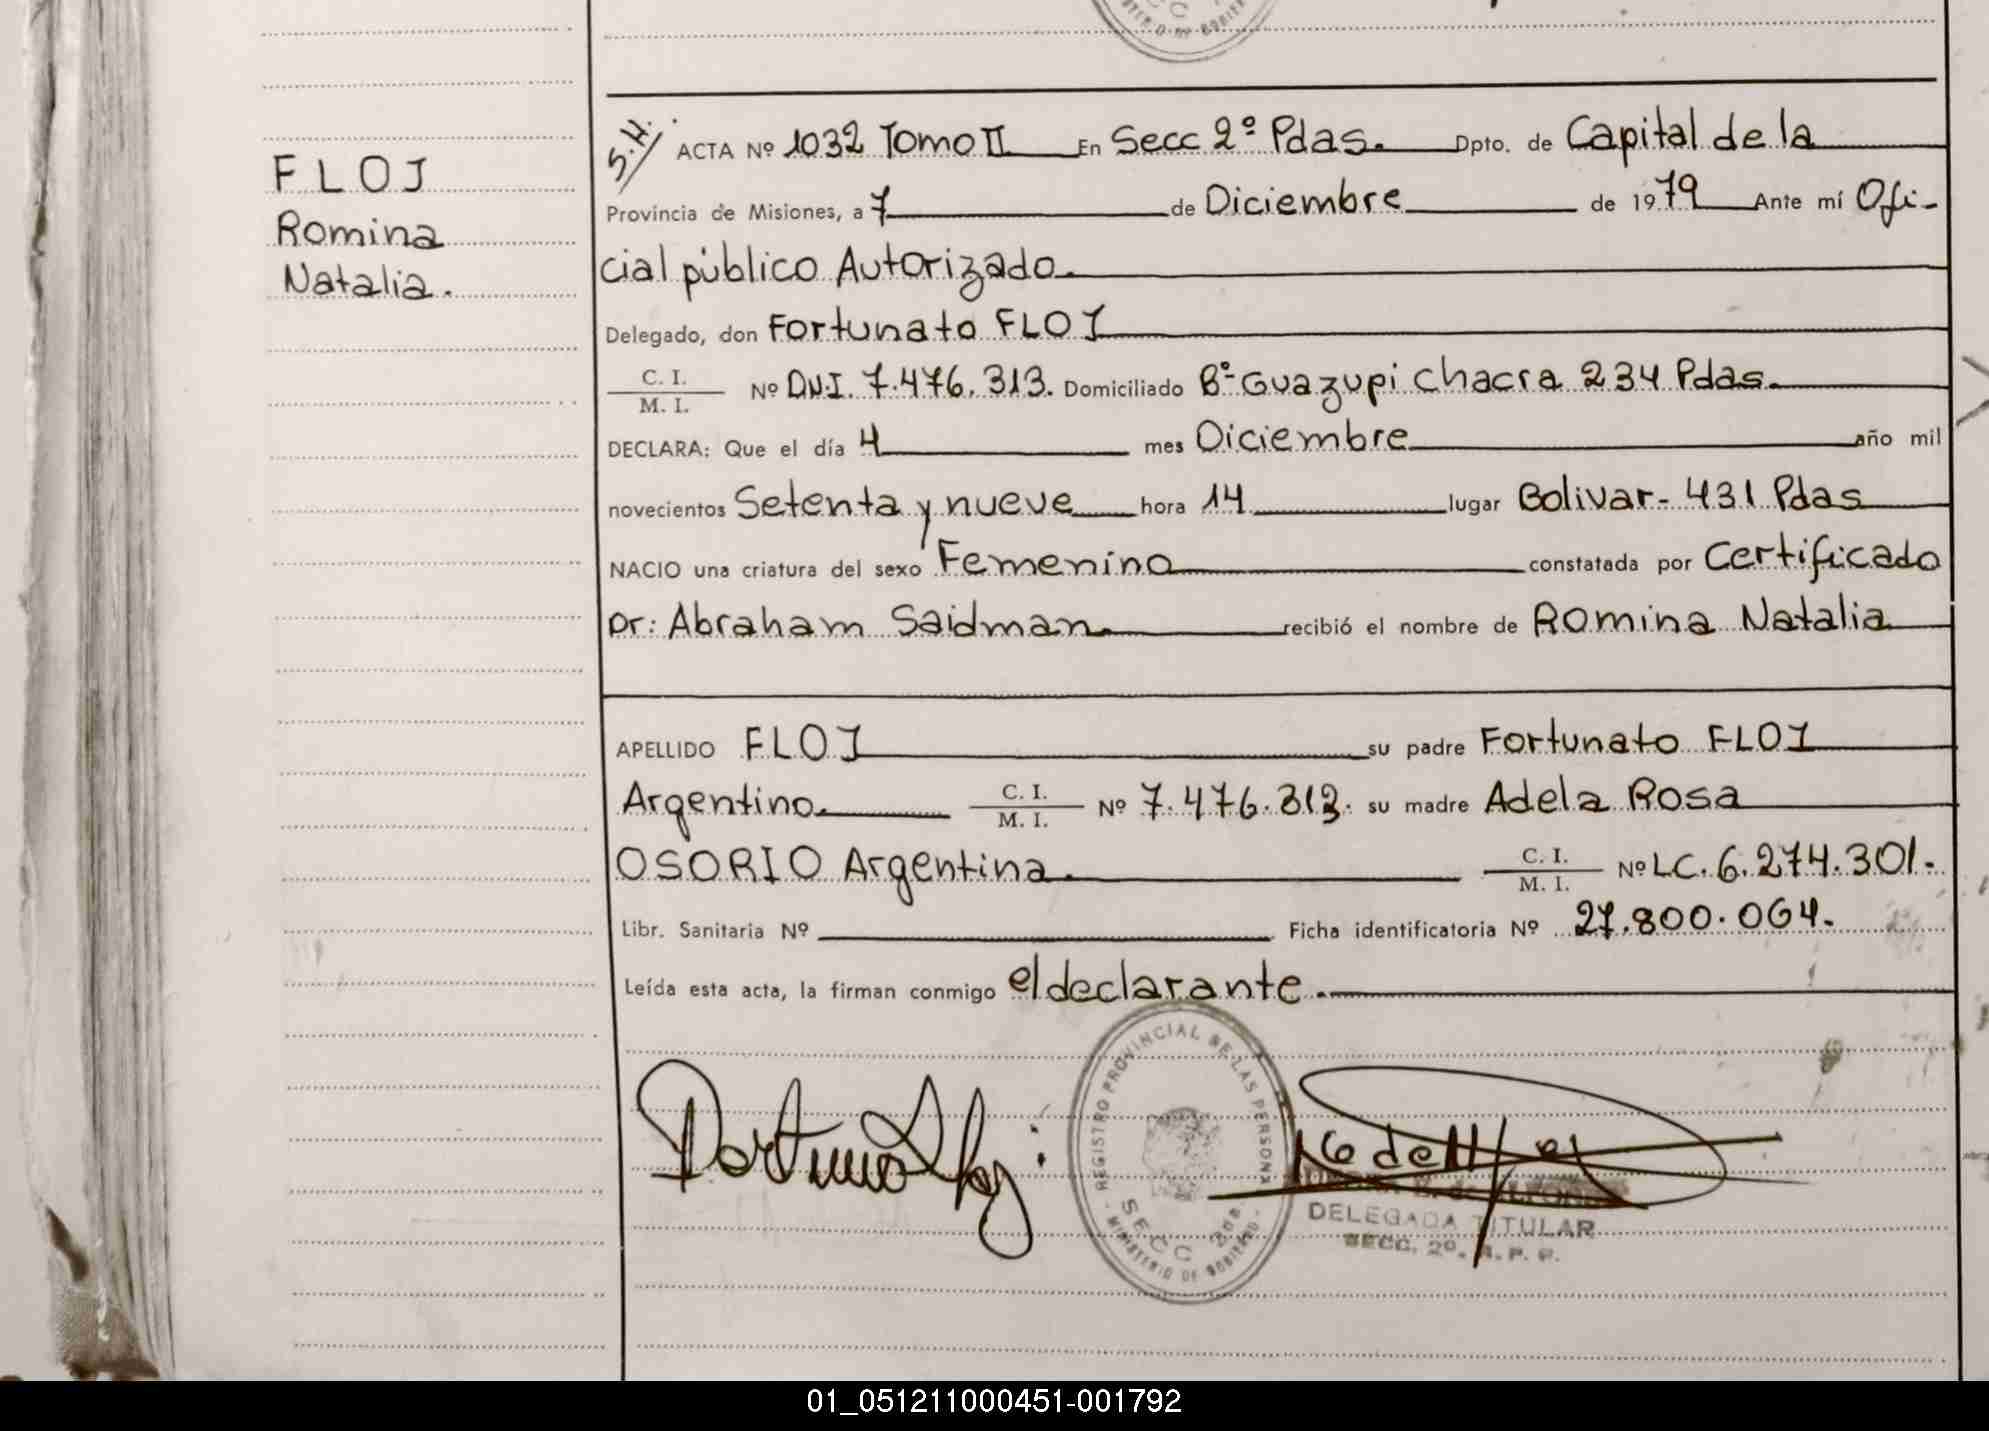 FLOJ
Romina
Natalia.
S.H. ACTA Nº 1032 Tomo II En Secc 2º Pdas. Dpto. de Capital de la
Provincia de Misiones, a 7 de Diciembre de 1979 Ante mí Ofi-
cial público Autorizado.
Delegado, don Fortunato FLOJ
C. I.
M. I. Nº D.N.I. 7.476.313. Domiciliado Bº Guazupi chacra 234 Pdas.
DECLARA: Que el día 4 mes Diciembre año mil
novecientos Setenta y nueve hora 14 lugar Bolivar - 431 Pdas
NACIO una criatura del sexo Femenino constatada por Certificado
Dr: Abraham Saidman. recibió el nombre de Romina Natalia
APELLIDO FLOJ su padre Fortunato FLOJ
Argentino. C. I.
M. I. Nº 7.476.313. su madre Adela Rosa
OSORIO Argentina. C. I.
M. I. Nº LC. 6.274.301.-
Libr. Sanitaria Nº Ficha identificatoria Nº 27.800.064.
Leída esta acta, la firman conmigo el declarante.
REGISTRO PROVINCIAL DE LAS PERSONAS
SECC 2da.
MINISTERIO DE GOBIERNO
DELEGADA TITULAR
SECC. 2º. R. P. P.
01_051211000451-001792